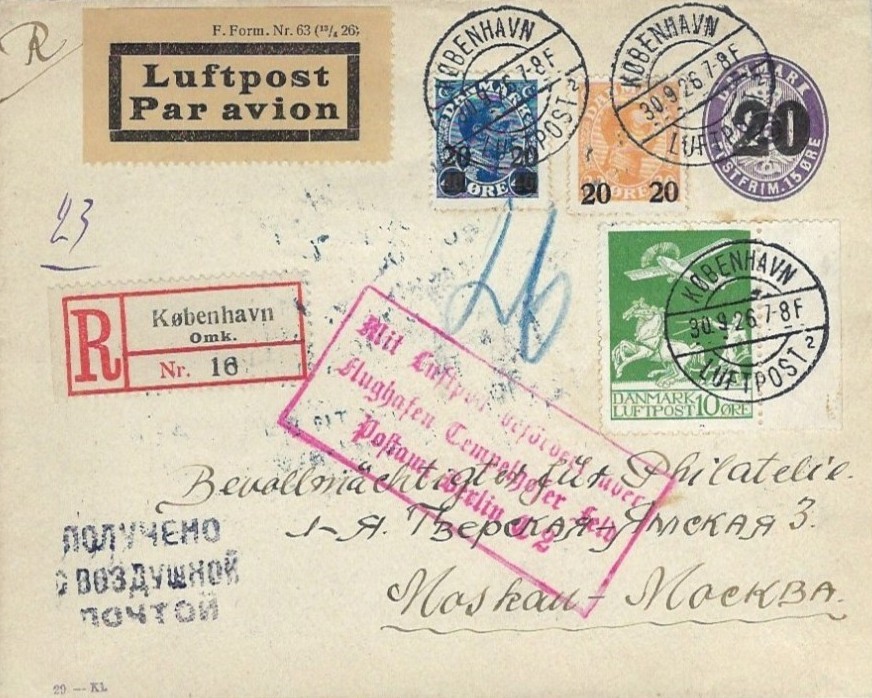 R
F. Form. Nr. 63 (¹⁵/₄ 26)
Luftpost
Par avion
KØBENHAVN
30.9.26.7-8F
LUFTPOST 2
DANMARK
20 20
ØRE
KØBENHAVN
30.9.26.7-8F
LUFTPOST
20 ØRE 20
DANMARK
20
POSTFRIM. 15 ØRE
23
26
KØBENHAVN
30.9.26.7-8F
LUFTPOST 2
DANMARK
LUFTPOST 10 ØRE
R
København
Omk.
Nr. 16
Mit Luftpost befördert über
Flughafen Tempelhofer Feld
Postamt Berlin C 2
Bevollmächtigter für Philatelie.
1-я. Тверская-Ямская 3.
Moskau - Москва.
ПОЛУЧЕНО
С ВОЗДУШНОЙ
ПОЧТОЙ
29 — Kl.